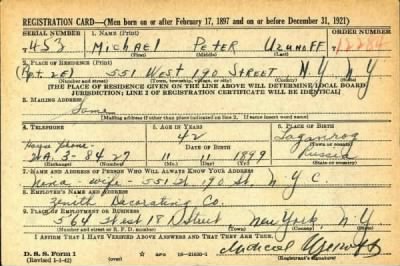 REGISTRATION CARD—(Men born on or after February 17, 1897 and on or before December 31, 1921)
SERIAL NUMBER 1. NAME (Print) ORDER NUMBER
453 Michael Peter Uzunoff 12284
(First) (Middle) (Last)
2. PLACE OF RESIDENCE (Print)
(Apt. 2E) 551 West 190 Street N.Y. N.Y.
(Number and street) (Town, township, village, or city) (County) (State)
[THE PLACE OF RESIDENCE GIVEN ON THE LINE ABOVE WILL DETERMINE LOCAL BOARD
JURISDICTION; LINE 2 OF REGISTRATION CERTIFICATE WILL BE IDENTICAL]
3. MAILING ADDRESS
Same
[Mailing address if other than place indicated on line 2. If same insert word same]
4. TELEPHONE 5. AGE IN YEARS 6. PLACE OF BIRTH
42 Taganrog
House phone- DATE OF BIRTH (Town or county)
WA. 3-8427 11 11 1899 Russia
(Exchange) (Number) (Mo.) (Day) (Yr.) (State or country)
7. NAME AND ADDRESS OF PERSON WHO WILL ALWAYS KNOW YOUR ADDRESS
Nina - wife - 551 W. 190 St. N.Y.C.
8. EMPLOYER'S NAME AND ADDRESS
Zenith Decorating Co.
9. PLACE OF EMPLOYMENT OR BUSINESS
564 West 18 Street New York, N.Y.
(Number and street or R. F. D. number) (Town) (County) (State)
I AFFIRM THAT I HAVE VERIFIED ABOVE ANSWERS AND THAT THEY ARE TRUE.
D. S. S. Form 1
(Revised 1-1-42) GPO 16—21630-1 Michael Uzunoff
(Registrant's signature)